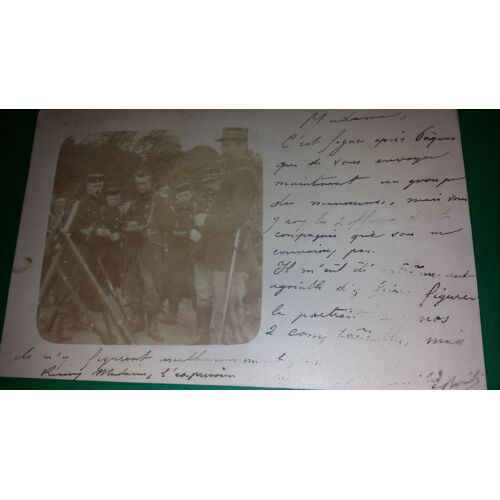 Madame,
C'est figues après Pâques
que de vous envoyer
maintenant un groupe
des manœuvres, mais vous
y voyez 2 de la
compagnie que vous ne
connaissez pas.
Il m'eût été extrêmement
agréable d'y faire figurer
le portrait de nos
2 comptables, mais
ils n'y figurent malheureusement
Madame, l'expression